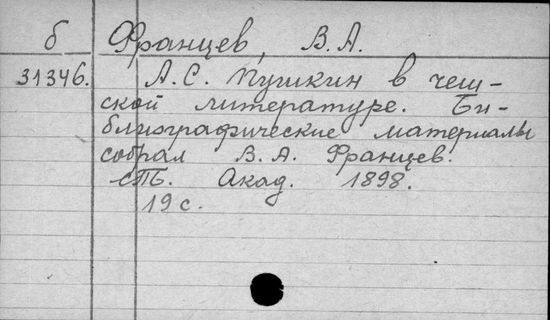 б Францев, В.А.
31346. А.С. Пушкин в чеш-
ской литературе. Би-
блиографические материалы
собрал В.А. Францев.
СПб. Акад. 1898.
19 с.